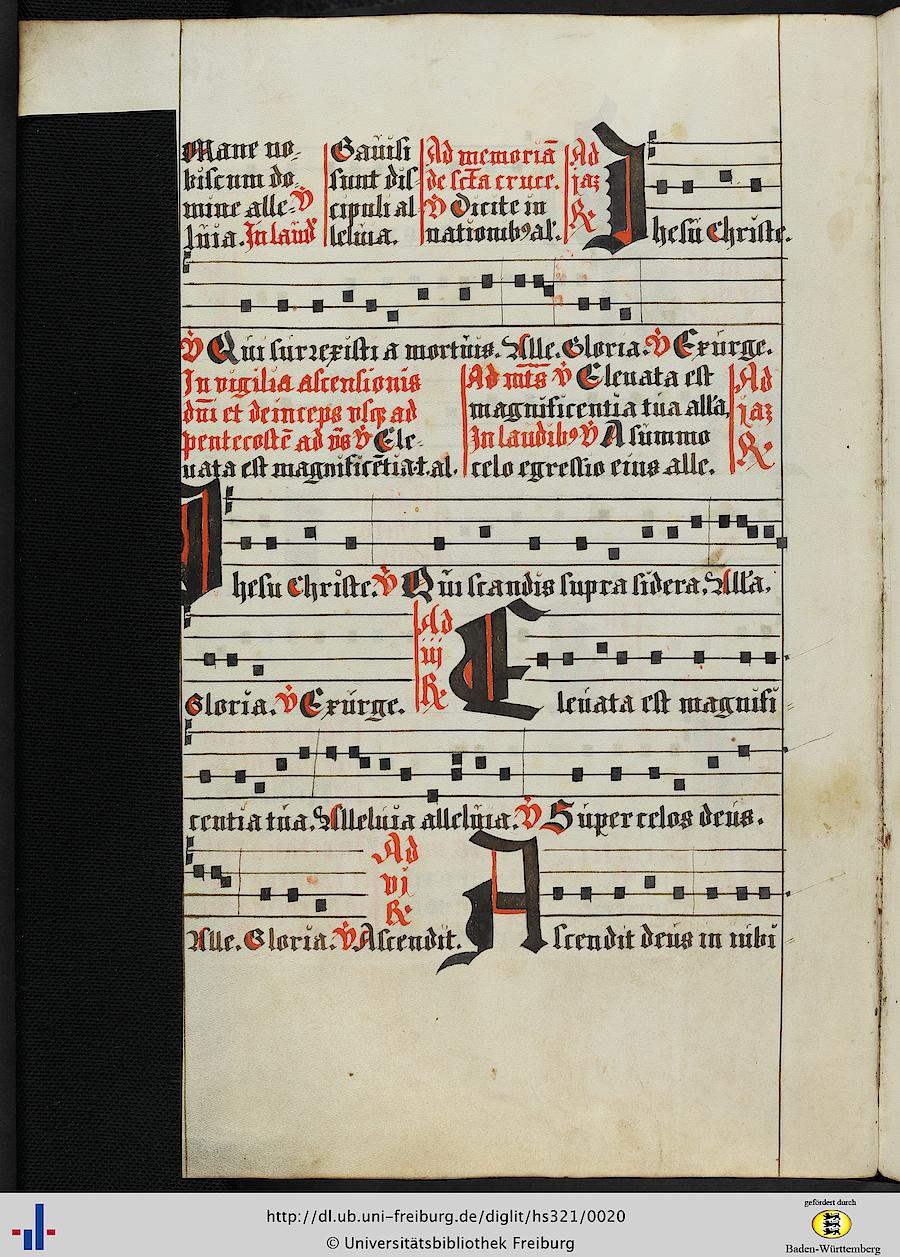 Mane no-
biscum do
mine alle- ℣
luia. In laud
Gauisi
sunt dis-
cipuli al
leluia.
Ad memoriā
de scta cruce.
℣ Dicite in
nationibꝰ al'.
Ad
iaz
℟
Jhesu Christe.
℣ Qui surrexisti a mortuis. Alle. Gloria. ℣ Exurge.
In vigilia ascensionis
dni et deinceps usqꝫ ad
pentecostē ad ℣ Ele-
uata est magnificētia.t.al.
Ad ℣ Eleuata est
magnificentia tua alla,
In laudibꝰ ℣ A summo
celo egressio eius alle.
Ad
iaz
℟
Jhesu Christe. ℣ Qui scandis supra sidera, Alla,
Gloria. ℣ Exurge.
Ad
iij
℟
Eleuata est magnifi
centia tua, Alleluia alleluia. ℣ Super celos deus.
Alle. Gloria. ℣ Ascendit.
Ad
vi
℟
Ascendit deus in iubi
http://dl.ub.uni-freiburg.de/diglit/hs321/0020
© Universitätsbibliothek Freiburg
gefördert durch
Baden-Württemberg